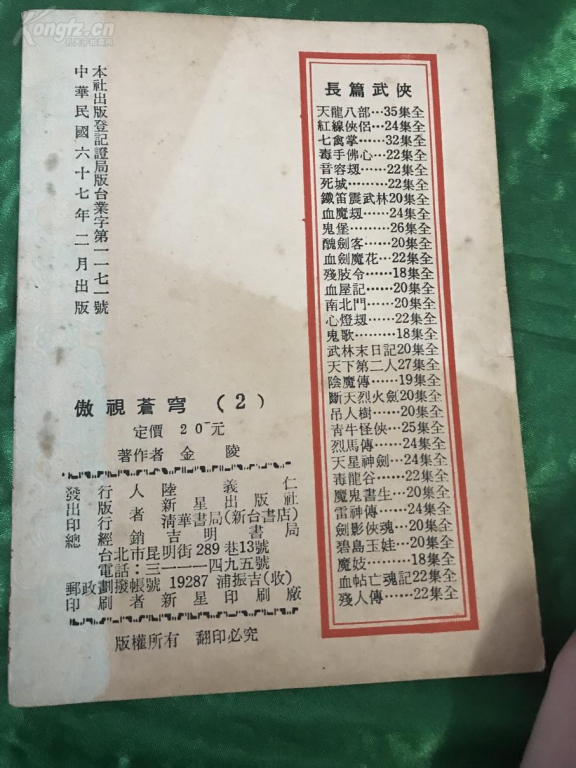 Kongfz.com
本社出版登記證局版台業字第一一七一號
中華民國六十七年二月出版
長篇武俠
天龍八部…35集全
紅線俠侶…24集全
七禽掌……32集全
毒手佛心…22集全
音容刼……22集全
死城………22集全
鐵笛震武林20集全
血魔刼……24集全
鬼堡………26集全
醜劍客……20集全
血劍魔花…22集全
殘肢令……18集全
血屋記……20集全
南北門……20集全
心燈刼……22集全
鬼歌………18集全
武林末日記20集全
天下第二人27集全
陰魔傳……19集全
斷天烈火劍20集全
吊人樹……20集全
靑牛怪俠…25集全
烈馬傳……24集全
天星神劍…24集全
毒龍谷……22集全
魔鬼書生…20集全
雷神傳……24集全
劍影俠魂…20集全
碧島玉娃…20集全
魔妓………18集全
血帖亡魂記22集全
殘人傳……22集全
傲視蒼穹（2）
定價 20元
著作者 金陵
發行人 陸義仁
出版者 新星出版社
印行 清華書局(新台書店)
總經銷 吉明書局
台北市昆明街289巷13號
電話：三一一一四九五號
郵政劃撥帳號19287浦振吉(收)
印刷者 新星印刷廠
版權所有 翻印必究